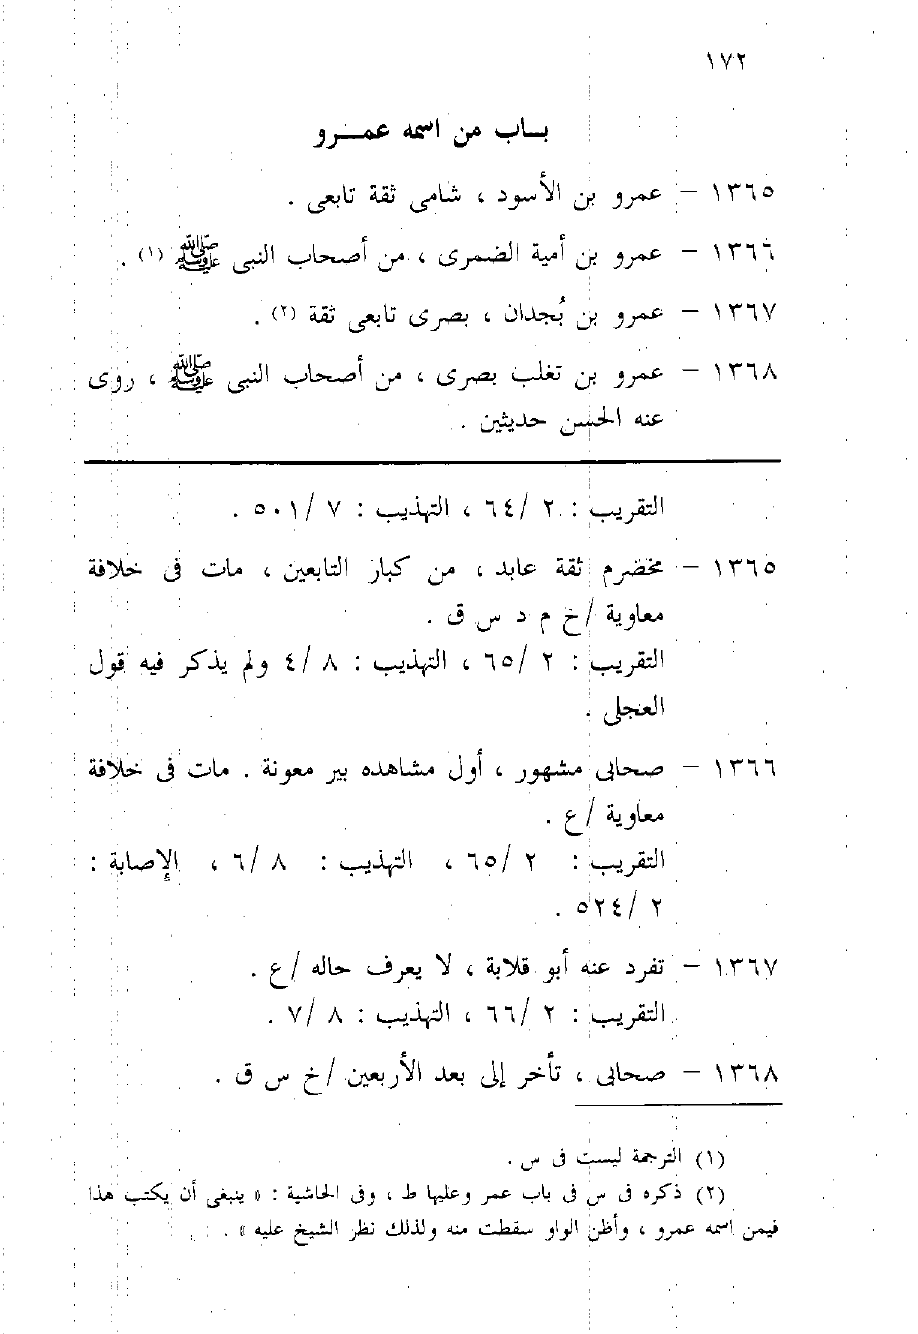 ١٧٢
بــاب من اسمه عمــرو
١٣٦٥ – عمرو بن الأسود ، شامى ثقة تابعى .
١٣٦٦ – عمرو بن أمية الضمرى ، من أصحاب النبى ﷺ (١) .
١٣٦٧ – عمرو بن بُجدان ، بصرى تابعى ثقة (٢) .
١٣٦٨ – عمرو بن تغلب بصرى ، من أصحاب النبى ﷺ ، روى
عنه الحسن حديثين .
التقريب : ٢ /٦٤ ، التهذيب : ٧ /٥٠١ .
١٣٦٥ – مخضرم ثقة عابد ، من كبار التابعين ، مات فى خلافة
معاوية /خ م د س ق .
التقريب : ٢ /٦٥ ، التهذيب : ٨ /٤ ولم يذكر فيه قول
العجلى .
١٣٦٦ – صحابى مشهور ، أول مشاهده بير معونة . مات فى خلافة
معاوية /ع .
التقريب : ٢ /٦٥ ، التهذيب : ٨ /٦ ، الإصابة :
٢ /٥٢٤ .
١٣٦٧ – تفرد عنه أبو قلابة ، لا يعرف حاله /ع .
التقريب : ٢ /٦٦ ، التهذيب : ٨ /٧ .
١٣٦٨ – صحابى ، تأخر إلى بعد الأربعين /خ س ق .
(١) الترجمة ليست فى س .
(٢) ذكره فى س فى باب عمر وعليها ط ، وفى الحاشية : « ينبغى أن يكتب هذا
فيمن اسمه عمرو ، وأظن الواو سقطت منه ولذلك نظر الشيخ عليه » .